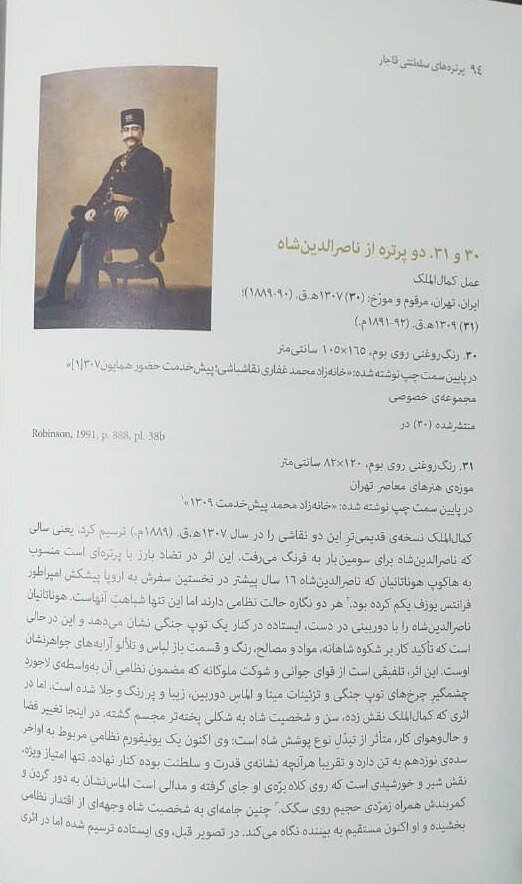 ۹۴ پرتره‌های سلطنتی قاجار
۳۰ و ۳۱. دو پرتره از ناصرالدین‌شاه
عمل کمال‌الملک
ایران، تهران، مرقوم و مورّخ: (۳۰) ۱۳۰۷ه‍.ق. (۹۰-۱۸۸۹)؛
(۳۱) ۱۳۰۹ه‍.ق. (۹۲-۱۸۹۱م.)
۳۰. رنگ‌روغنی روی بوم، ۱۶۵×۱۰۵ سانتی‌متر
در پایین سمت چپ نوشته شده: «خانه‌زاد محمد غفاری نقاشباشی؛ پیش‌خدمت حضور همایون ۳۰۷[۱]»
مجموعه‌ی خصوصی
منتشرشده (۳۰) در
Robinson, 1991, p. 888, pl. 38b
۳۱. رنگ‌روغنی روی بوم، ۱۲۰×۸۲ سانتی‌متر
موزه‌ی هنرهای معاصر تهران
در پایین سمت چپ نوشته شده: «خانه‌زاد محمد پیش‌خدمت ۱۳۰۹»۱
کمال‌الملک نسخه‌ی قدیمی‌تر این دو نقاشی را در سال ۱۳۰۷ه‍.ق. (۱۸۸۹م.) ترسیم کرد، یعنی سالی
که ناصرالدین‌شاه برای سومین بار به فرنگ می‌رفت. این اثر در تضاد بارز با پرتره‌ای است منسوب
به هاکوپ هوناتانیان که ناصرالدین‌شاه ۱۶ سال پیشتر در نخستین سفرش به اروپا پیشکش امپراطور
فرانتس یوزف یکم کرده بود.۲ هر دو نگاره حالت نظامی دارند اما این تنها شباهت آنهاست. هوناتانیان
ناصرالدین‌شاه را با دوربینی در دست، ایستاده در کنار یک توپ جنگی نشان می‌دهد و این در حالی
است که تأکید کار بر شکوه شاهانه، مواد و مصالح، رنگ و قسمت باز لباس و تلألو آرایه‌های جواهرنشان
اوست. این اثر، تلفیقی است از قوای جوانی و شوکت ملوکانه که مضمون نظامی آن به‌واسطه‌ی لاجورد
چشمگیر چرخ‌های توپ جنگی و تزئینات مینا و الماس دوربین، زیبا و پر رنگ و جلا شده است. اما در
اثری که کمال‌الملک نقش زده، سن و شخصیت شاه به شکلی پخته‌تر مجسم گشته. در اینجا تغییر فضا
و حال‌وهوای کار، متأثر از تبدّل نوع پوشش شاه است: وی اکنون یک یونیفورم نظامی مربوط به اواخر
سده‌ی نوزدهم به تن دارد و تقریبا هرآنچه نشانه‌ی قدرت و سلطنت بوده کنار نهاده. تنها امتیاز ویژه،
نقش شیر و خورشیدی است که روی کلاه بره‌ی او جای گرفته و مدالی است الماس‌نشان به دور گردن و
کمربندش همراه زمردی حجیم روی سگک.۳ چنین جامه‌ای به شخصیت شاه وجهه‌ای از اقتدار نظامی
بخشیده و او اکنون مستقیم به بیننده نگاه می‌کند. در تصویر قبل، وی ایستاده ترسیم شده اما در اثری